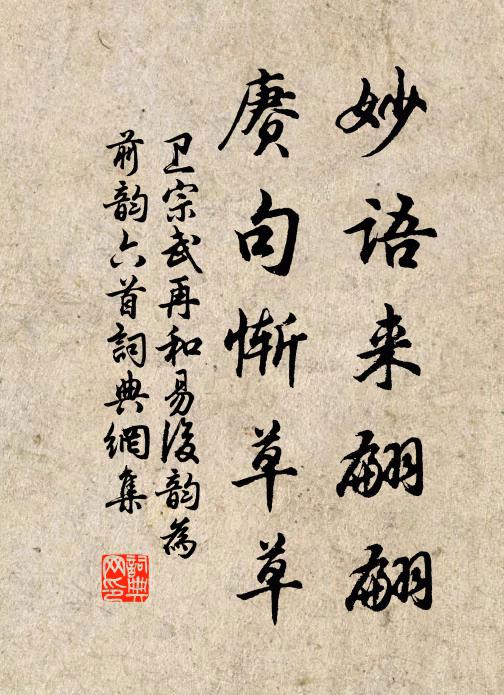 妙语来翩翩
赓句惭草草
卫宗武再和易后韵為
前韵六首詞典網集
詞典网印